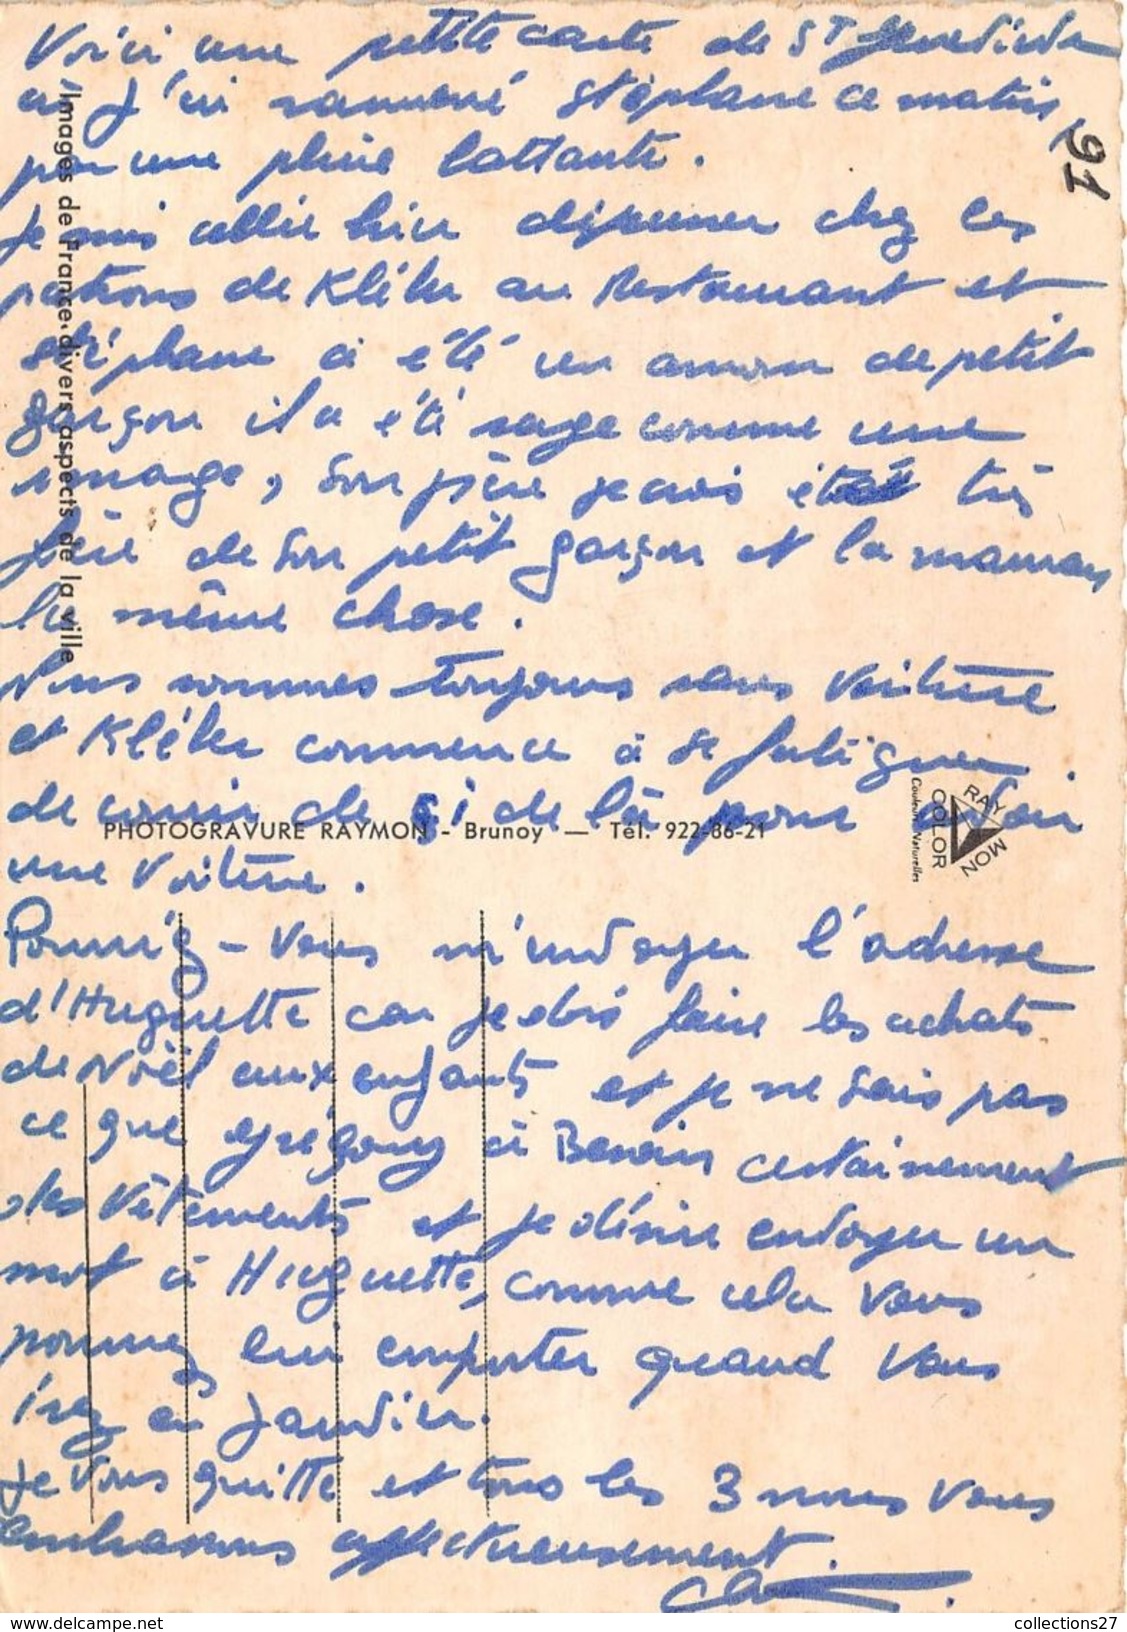 Voici une petite carte de St Geneviève
où j'ai ramené Stéphane ce matin
par une pluie battante.
Je suis allée hier déjeuner chez les
patrons de Kléber au restaurant et
Stéphane a été un amour de petit
garçon il a été sage comme une
image, son père je crois était très
fier de son petit garçon et la maman
la même chose.
Nous sommes toujours sans voiture
et Kléber commence à se fatiguer
de courir de ci de là pour avoir
une voiture.
Pourriez-vous m'envoyer l'adresse
d'Huguette car je dois faire les achats
de Noël aux enfants et je ne sais pas
ce que Grégory a besoin certainement
des vêtements et je désire envoyer un
mot à Huguette, comme cela vous
pourrez leur emporter quand vous
irez en Janvier.
Je vous quitte et tous les 3 nous vous
embrassons affectueusement.
91
Images de France, divers aspects de la ville
PHOTOGRAVURE RAYMON - Brunoy — Tél. 922-86-21
RAYMON
COLOR
Couleurs Naturelles
collections27